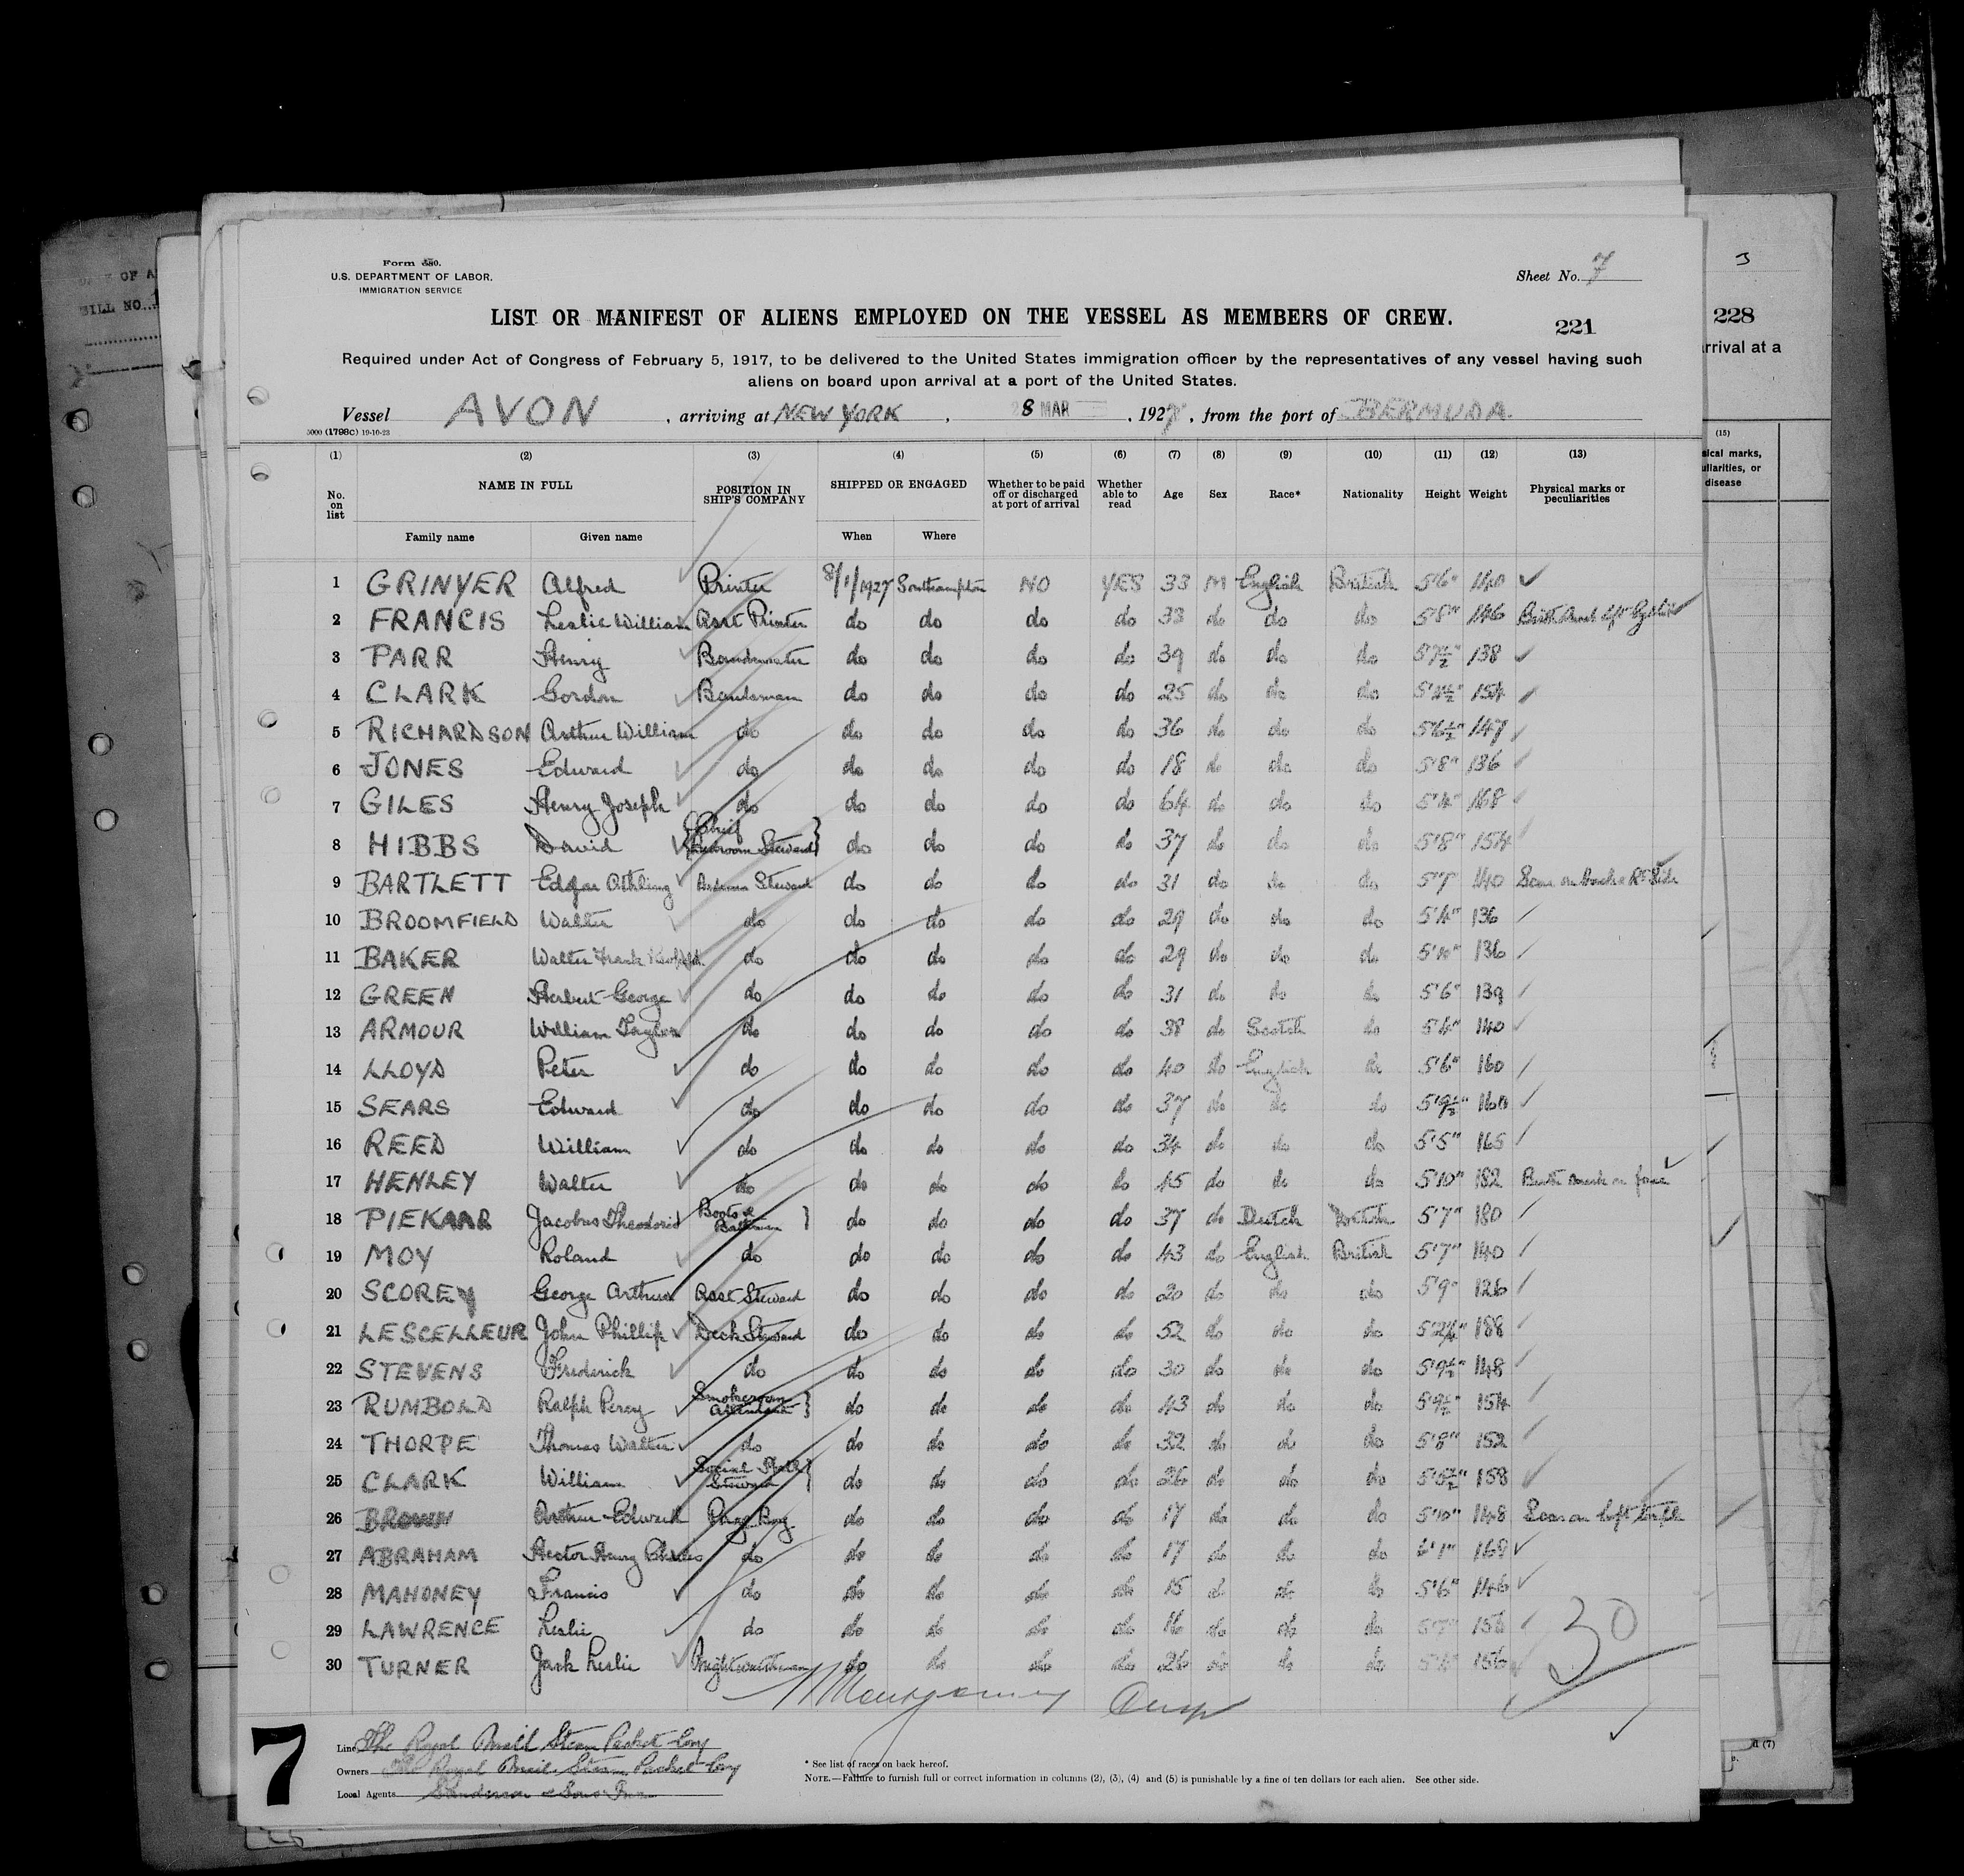 Form 680.
U.S. DEPARTMENT OF LABOR.
IMMIGRATION SERVICE
Sheet No. 7
LIST OR MANIFEST OF ALIENS EMPLOYED ON THE VESSEL AS MEMBERS OF CREW.
221
Required under Act of Congress of February 5, 1917, to be delivered to the United States immigration officer by the representatives of any vessel having such
aliens on board upon arrival at a port of the United States.
Vessel AVON, arriving at NEW YORK, 8 MAR, 1927, from the port of BERMUDA.
5000 (1798C) 19-10-23
(1) (2) (3) (4) (5) (6) (7) (8) (9) (10) (11) (12) (13)
No. on list NAME IN FULL POSITION IN SHIP'S COMPANY SHIPPED OR ENGAGED Whether to be paid off or discharged at port of arrival Whether able to read Age Sex Race* Nationality Height Weight Physical marks or peculiarities
Family name Given name When Where
1 GRINYER Alfred Printer 8/1/1927 Southampton NO YES 33 M English British 5'6" 140
2 FRANCIS Leslie William Asst Printer do do do do 33 do do do 5'8" 146
3 PARR Henry Bandmaster do do do do 39 do do do 5'7½" 138
4 CLARK Gordon Bandsman do do do do 25 do do do 154
5 RICHARDSON Arthur William do do do do do 36 do do do 5'6½" 147
6 JONES Edward do do do do do 18 do do do 5'8" 136
7 GILES Henry Joseph do do do do do 64 do do do 5'4" 168
8 HIBBS David Chief Bedroom Steward do do do do 37 do do do 5'8" 154
9 BARTLETT Edgar Bedroom Steward do do do do 31 do do do 5'7" 140
10 BROOMFIELD Walter do do do do do 29 do do do 5'4" 136
11 BAKER Walter Frank do do do do do 29 do do do 136
12 GREEN Herbert George do do do do do 31 do do do 5'6" 139
13 ARMOUR William Taylor do do do do do 38 do Scotch do 5'4" 140
14 LLOYD Peter do do do do do 40 do English do 5'6" 160
15 SEARS Edward do do do do do 37 do do do 5'9½" 160
16 REED William do do do do do 34 do do do 5'5" 165
17 HENLEY Walter do do do do do 45 do do do 5'10" 182 Birth mark on
18 PIEKAAR Jacobus Boots & do do do do 37 do Dutch Dutch 5'7" 180
19 MOY Roland do do do do do 43 do English British 5'7" 140
20 SCOREY George Arthur Asst Steward do do do do 20 do do do 5'9" 126
21 LESCELLEUR John Phillip Deck Steward do do do do 52 do do do 188
22 STEVENS Frederick do do do do do 30 do do do 5'9½" 148
23 RUMBOLD Ralph Percy Smokeroom Attendant do do do do 43 do do do 5'9½" 154
24 THORPE Thomas Walter do do do do do 32 do do do 5'8" 152
25 CLARK William Social Hall Steward do do do do 26 do do do 158
26 BROWN Arthur Edward Page Boy do do do do 17 do do do 5'10" 148 Scar on left
27 ABRAHAM Hector Henry Charles do do do do do 17 do do do 168
28 MAHONEY Francis do do do do do 15 do do do 5'6" 146
29 LAWRENCE Leslie do do do do do 16 do do do
30 TURNER Jack Leslie Nightwatchman do do do do 26 do do do 156
30
Montgomery
7
Line The Royal Mail Steam Packet Coy
Owners The Royal Mail Steam Packet Coy
Local Agents Sanderson & Sons Inc
* See list of races on back hereof.
NOTE.—Failure to furnish full or correct information in columns (2), (3), (4) and (5) is punishable by a fine of ten dollars for each alien. See other side.
228
arrival at a
(15)
disease
BILL NO.